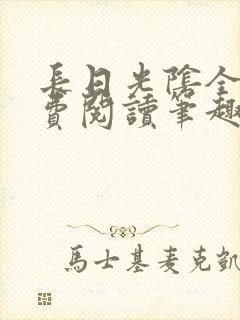 長日光陰全
費閱讀筆趣
馬士基麥克凱